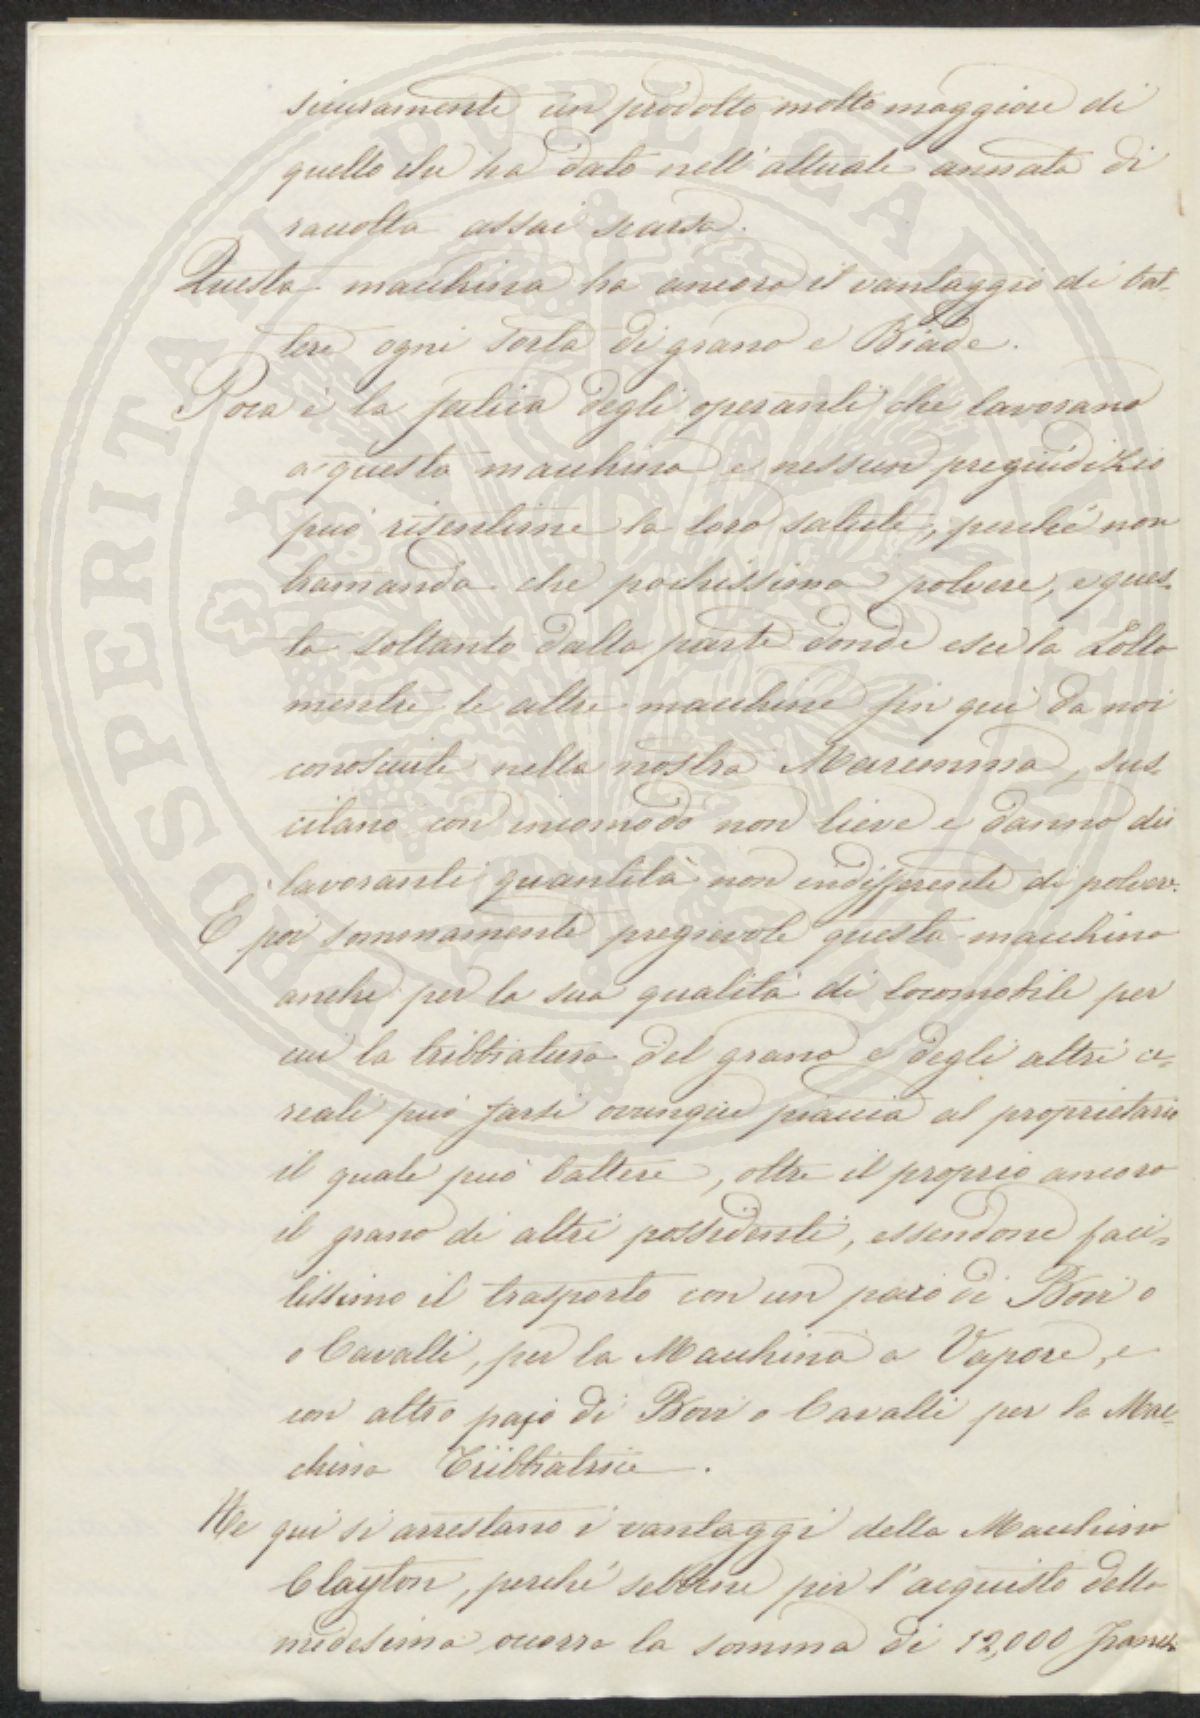 sicuramente un prodotto molto maggiore di
quello che ha dato nell'attuale annata di
raccolta assai scarsa.
Questa macchina ha ancora il vantaggio di bat-
tere ogni sorta di grano e Biade.
Poca è la fatica degli operanti che lavorano
a questa macchina e nessun pregiudizio
può risentirne la loro salute, perché non
tramanda che pochissima polvere, e ques-
ta soltanto dalla parte donde esce la Lolla
mentre le altre macchine fin qui da noi
conosciute nella nostra Maremma, sus-
citano con incomodo non lieve e danno dei
lavoranti quantità non indifferente di polvere.
È poi sommamente pregievole questa macchina
anche per la sua qualità di locomobile per
cui la tribbiatura del grano e degli altri ce-
reali può farsi ovunque piaccia al proprietario
il quale può battere, oltre il proprio ancora
il grano di altri possidenti, essendone faci-
lissimo il trasporto con un pajo di Bovi o
o Cavalli, per la Macchina a Vapore, e
con altro pajo di Bovi o Cavalli per la Mac-
china Tribbiatrice.
Ne qui si arrestano i vantaggi della Macchina
Clayton, perché sebbene per l'acquisto della
medesima occorra la somma di 12,000 Franchi
PROSPERITATI PUBLICAE AUGENDAE